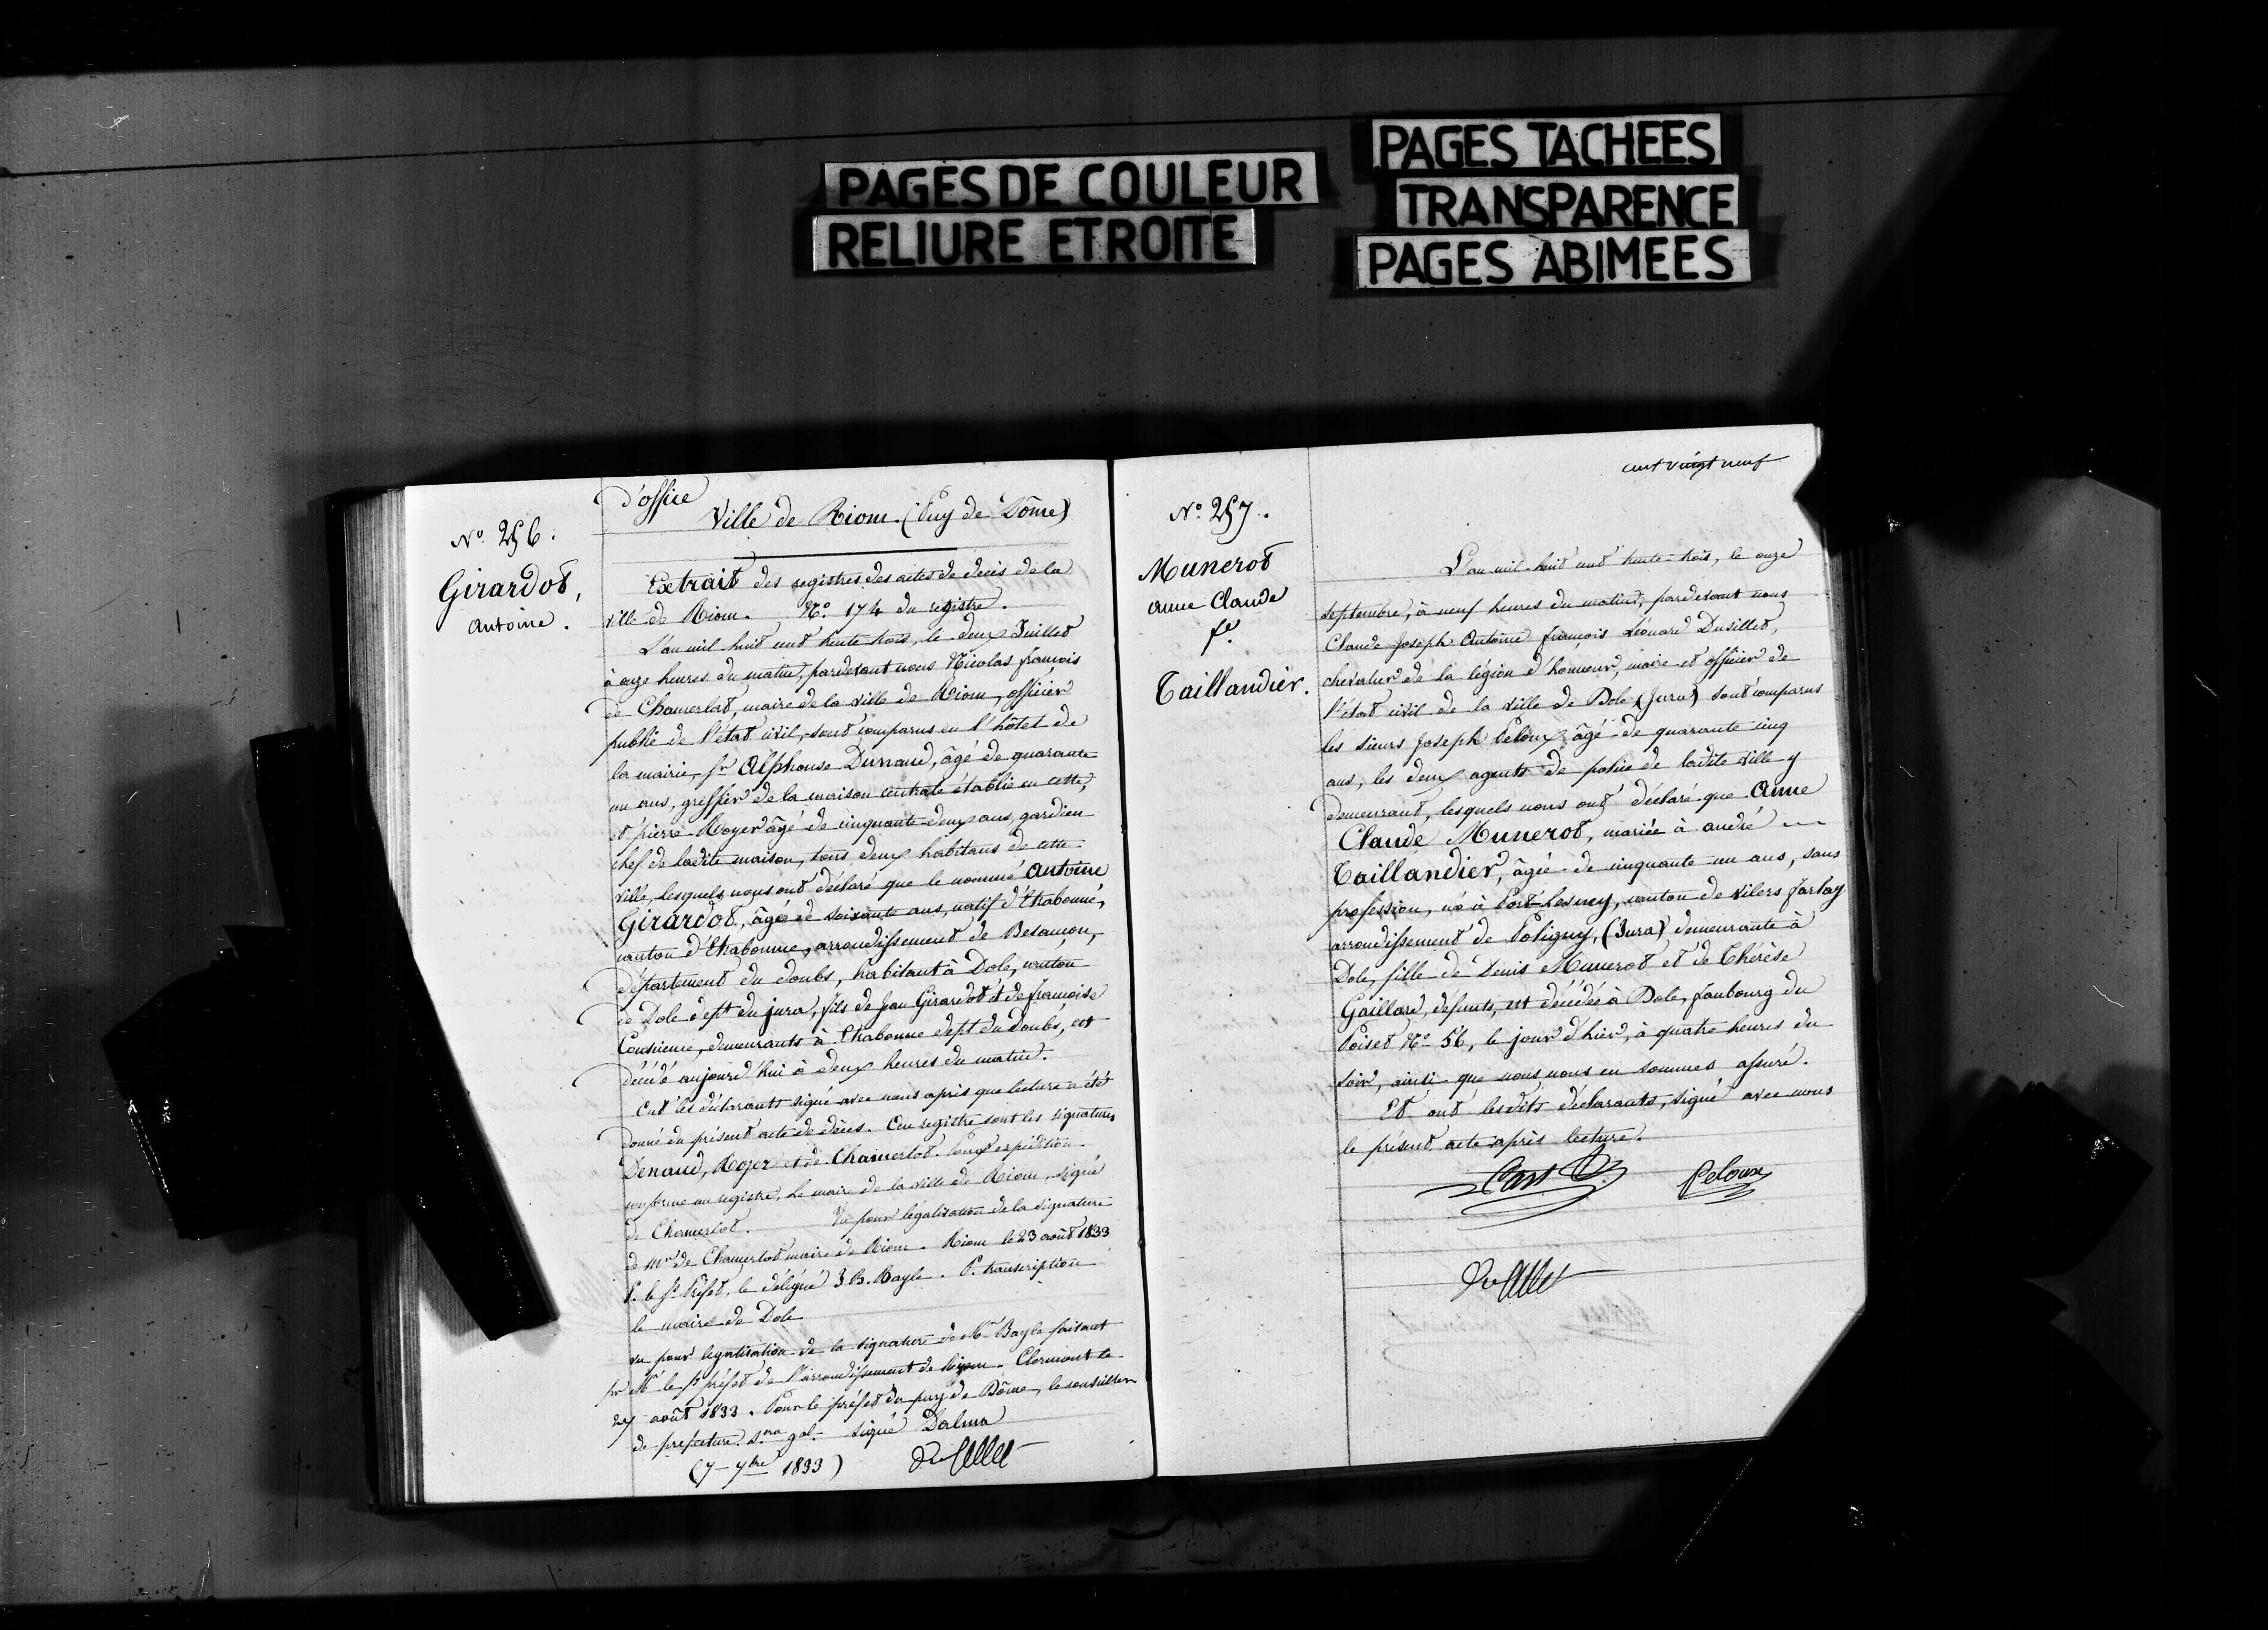 PAGES DE COULEUR
RELIURE ETROITE
PAGES TACHEES
TRANSPARENCE
PAGES ABIMEES
N° 256.
Girardot,
Antoine.
d'office
Ville de Riom (Puy de Dôme)
Extrait des registres des actes de décès de la
ville de Riom. N° 174 du registre.
L'an mil huit cent trente trois, le deux Juillet
à onze heures du matin, pardevant nous Nicolas françois
de Chamerlat, maire de la ville de Riom, officier
public de l'état civil, sont comparus en l'hôtel de
la mairie, sr Alphonse Durnaud, âgé de quarante
un ans, greffier de la maison centrale établie en cette,
et pierre Royer âgé de cinquante deux ans, gardien
chef de ladite maison, tous deux habitans de cette
ville, lesquels nous ont déclaré que le nommé Antoine
Girardot, âgé de soixante ans, natif d'Etrabonne,
canton d'Etrabonne, arrondissement de Besançon,
département du doubs, habitant à Dole, canton
de Dole dept du jura, fils de Jean Girardot et de françoise
demeurants à Etrabonne dept du Doubs, est
décédé aujourd'hui à deux heures du matin.
Ont les déclarants signé avec nous après que lecture a été
donné du présent acte de décès. Au registre sont les signatures
Denaud, Royer et de Chamerlat. Pour expédition
conforme au registre, Le maire de la ville de Riom, signé
de Chamerlat. Vu pour légalisation de la signature
de Mr de Chamerlat maire de Riom. Riom le 23 août 1833
P. le Ss Préfet, le délégué J. B. Bayle. P. transcription
le maire de Dole
vu pour légalisation de la signature de Mr Bayle faisant
pr Mr le ss préfet de l'arrondissement de Riom. Clermont le
27 août 1833. Pour le préfet du puy de Dôme, le conseiller
de préfecture sre gal. signé Dalma
(7 7bre 1833)
cent vingt neuf
N° 257.
Munerot
anne Claude
fe
Taillandier.
L'an mil huit cent trente-trois, le onze
septembre, à neuf heures du matin, pardevant nous
Claude Joseph Antoine françois Léonard Dusillet,
chevalier de la légion d'honneur, maire et officier de
l'état civil de la ville de Dole (Jura) sont comparus
les sieurs Joseph Peloux âgé de quarante cinq
ans, les deux agents de police de ladite ville y
demeurant, lesquels nous ont déclaré que Anne
Claude Munerot, mariée à andré
Taillandier, âgée de cinquante un ans, sans
profession, née à Port Lesney, canton de Vilers farlay
arrondissement de Poligny, (Jura) demeurante à
Dole, fille de Denis Munerot et de Thérèse
Gaillard, défunts, est décédée à Dole, faubourg du
Poiset N° 56, le jour d'hier, à quatre heures du
soir, ainsi que nous nous en sommes assuré.
Et ont lesdits déclarants, signé avec nous
le présent acte après lecture.
Peloux